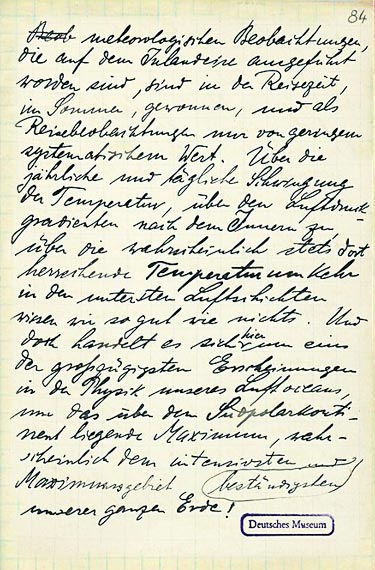 84
Beob meteorologischen Beobachtungen,
die auf dem Inlandeise ausgeführt
worden sind, sind in der Reisezeit,
im Sommer, gewonnen, und als
Reisebeobachtungen nur von geringem
systematischem Wert. Über die
jährliche und tägliche Schwingung
der Temperatur, über den Luftdruck-
gradienten nach dem Innern zu,
über die wahrscheinlich stets dort
herrschende Temperaturumkehr
in den untersten Luftschichten
wissen wir so gut wie nichts. Und
doch handelt es sich hier um eine
der großzügigsten Erscheinungen
in der Physik unseres Luftoceans,
um das über dem Südpolarkonti-
nent liegende Maximum, wahr-
scheinlich dem intensivsten und
Maximumgebiet beständigsten
unserer ganzen Erde!
Deutsches Museum